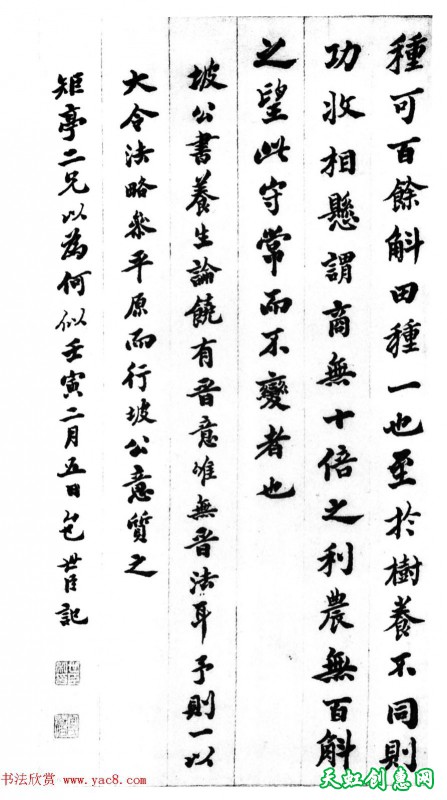 種可百餘斛田種一也至於樹養不同則
功收相懸謂商無十倍之利農無百斛
之望此守常而不變者也
坡公書養生論饒有晉意唯無晉法耳予則一以
大令法略參平原而行坡公意質之
矩亭二兄以為何似壬寅二月五日包世臣記
书法欣赏 www.yac8.com
天虹创惠网